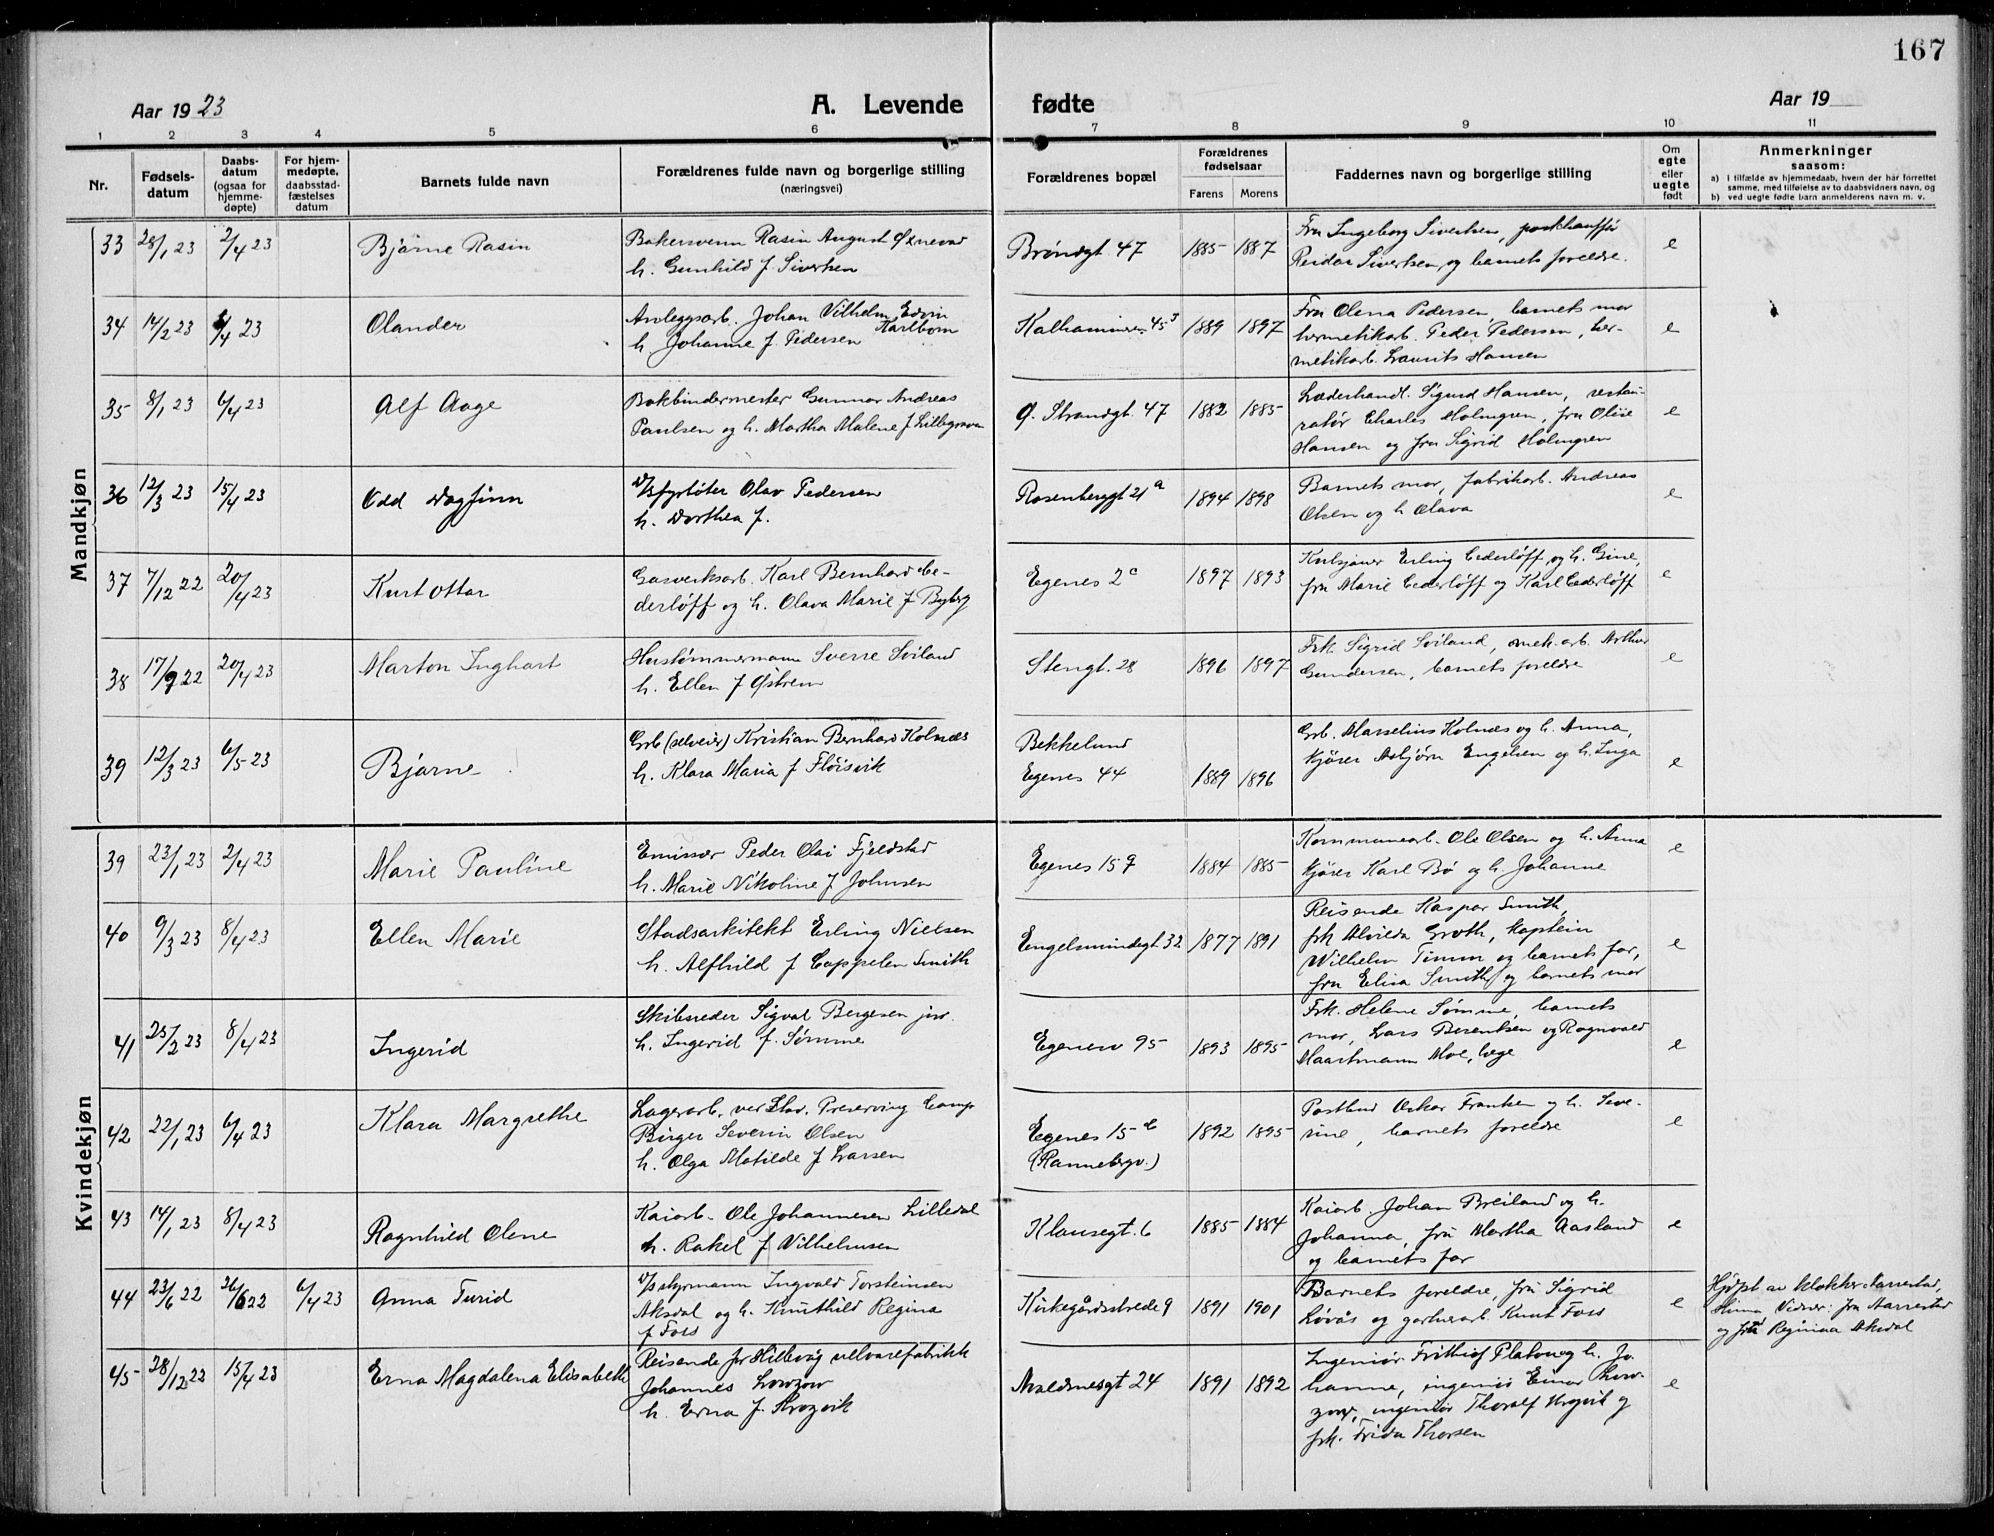 167
Aar 1923 A. Levende fødte Aar 19
1 2 3 4 5 6 7 8 9 10 11
Nr.
Fødsels-
datum
Daabs-
datum
(ogsaa for
hjemme-
døpte)
For hjem-
medøpte,
daabsstad-
fæstelses
datum
Barnets fulde navn
Forældrenes fulde navn og borgerlige stilling
(næringsvei)
Forældrenes bopæl
Forældrenes
fødselsaar
Farens Morens
Faddernes navn og borgerlige stilling
Om
egte
eller
uegte
født
Anmerkninger
saasom:
a) i tilfælde av hjemmedaab, hvem der har forrettet
samme, med tilføielse av to daabsvidners navn, og
b) ved uegte fødte barn anmelderens navn m. v.
Mandkjøn
33 28/1 23 2/4 23 Bjarne Rasin
Bakersvenn Rasin August Øxnevad
h. Gunhild f Sivertsen
Brøndgt 47 1885 1887
Fru Ingeborg Sivertsen, postchauffør
Reidar Sivertsen og barnets foreldre.
e
34 14/2 23 /4 23 Olander
Anleggsarb. Johan Vilhelm Edvin
Karlbom
h. Johanne f. Pedersen
Kalhammeren 45³ 1889 1897
Fru Olena Pedersen, barnets mor
hermetikarb. Peder Pedersen, her-
metikarb. Lauritz Hansen
e
35 8/1 23 6/4 23 Alf Aage
Bokbindermester Gunnar Andreas
Paulsen og h. Martha Malene f Lillegraven
Ø. Strandgt. 47 1882 1885
Læderhandl. Sigurd Hansen, restau-
ratør Charles Holmgren, fru Olise
Hansen og fru Sigrid Holmgren
e
36 12/3 23 15/4 23 Odd Dagfinn
D/S fyrbøter Olav Pedersen
h. Dorthea f.
Rosenberggt 21a 1894 1898
Barnets mor, fabrikarb. Andreas
Olsen og h Olava
e
37 7/12 22 20/4 23 Kurt Ottar
Gasverksarb. Karl Bernhard Ce-
derløff og h. Olava Marie f Byberg
Egenes 2c 1897 1893
Erling Cederløff og h. Gine,
fru Marie Cederløff og Karl Cederløff
e
38 17/9 22 20/4 23 Marton Inghart
Hustømmermann Sverre Sviland
h. Ellen f Østrem
Stengt. 28 1896 1897
Frk. Sigrid Sviland, mek. arb. Arthur
Gundersen, barnets foreldre
e
39 12/3 23 6/5 23 Bjarne
Grb (selveier) Kristian Bernhard Kolnæs
h. Klara Maria f Fløisvik
Bekkelund
Egenes 44 1889 1896
Grb. Marselius Kolnæs og h. Anna,
kjører Asbjørn Engelsen og h. Inga
e
Kvindekjøn
39 23/1 23 2/4 23 Marie Pauline
Emissær Peder Olai Fjeldstad
h. Marie Nikoline f Johnsen
Egenes 159 1884 1885
Kommunearb. Ole Olsen og h. Anna
kjører Karl Bø og h. Johanne
e
40 9/3 23 8/4 23 Ellen Marie
Stadsarkitekt Erling Nielsen
h. Alfhild f Cappelen Smith
Engelsmindegt 32 1877 1891
Reisende Kaspar Smith,
frk Alvilda Groth, kaptein
Wilhelm Timm og barnets far,
fru Elisa Smith og barnets mor
e
41 25/2 23 8/4 23 Ingerid
Skibsreder Sigval Bergesen jnr.
h. Ingerid f. Sømme
Egenesv 95 1893 1895
Frk. Helene Sømme, barnets
mor, Lars Berentsen og Ragnvald
Maartmann Moe, læge
e
42 22/1 23 6/4 23 Klara Margrethe
Lagerarb. ved Stav. Preserving Comp
Birger Severin Olsen
h. Olga Matilde f Larsen
Egenes 15b
(Rannebergv.) 1892 1895
Postbud Oskar Franken og h. Seve-
rine, barnets foreldre
e
43 14/1 23 8/4 23 Ragnhild Olene
Kaiarb. Ole Johannesen Lilledal
h. Rakel f Vilhelmsen
Klausegt. 6 1885 1884
Kaiarb. Johan Breiland og h.
Johanna, fru Martha Aasland
og barnets far
e
44 23/6 22 26/6 22 6/4 23 Anna Turid
D/S styrmann Ingvald Torsteinsen
Aksdal og h. Knuthild Regina
f Foss
Kirkegårdsstrede 9 1891 1901
Barnets foreldre, fru Sigrid
Løvås og garverarb. Knut Foss
e
Hjdpt. av klokker Narrestad,
Hinna Vidner: fru Narrestad
og fru Reginaa Aksdal
45 28/12 22 15/4 23 Erna Magdalena Elisabeth
Reisende for Hillevåg velvarefabrikk
Johannes Lowzow
h. Erna f.
Avaldsnesgt 24 1891 1892
Ingeniør Frithiof Platou og h. Jo-
hanne, ingeniør Einar Low-
zow, ingeniør Thoralf og
frk. Frida Thorsen
e